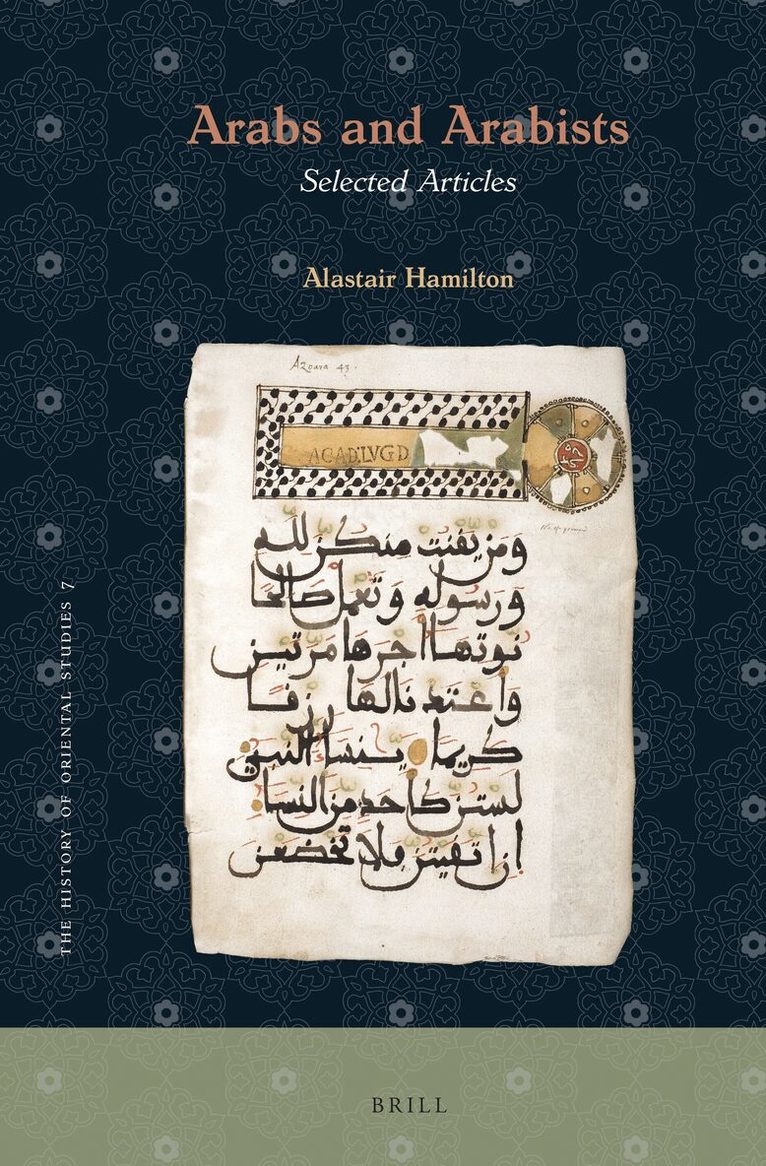 Arabs and Arabists
Selected Articles
Alastair Hamilton
Azoara 43.
ACAD. LVGD
ومن يقنت منكن لله
ورسوله وتعمل صالحا
نوتها اجرها مرتين
واعتدنا لها رزقا
كريما ينساء النبي
لستن كاحد من النسا
ان اتقيتن فلا تخضعن
THE HISTORY OF ORIENTAL STUDIES 7
BRILL